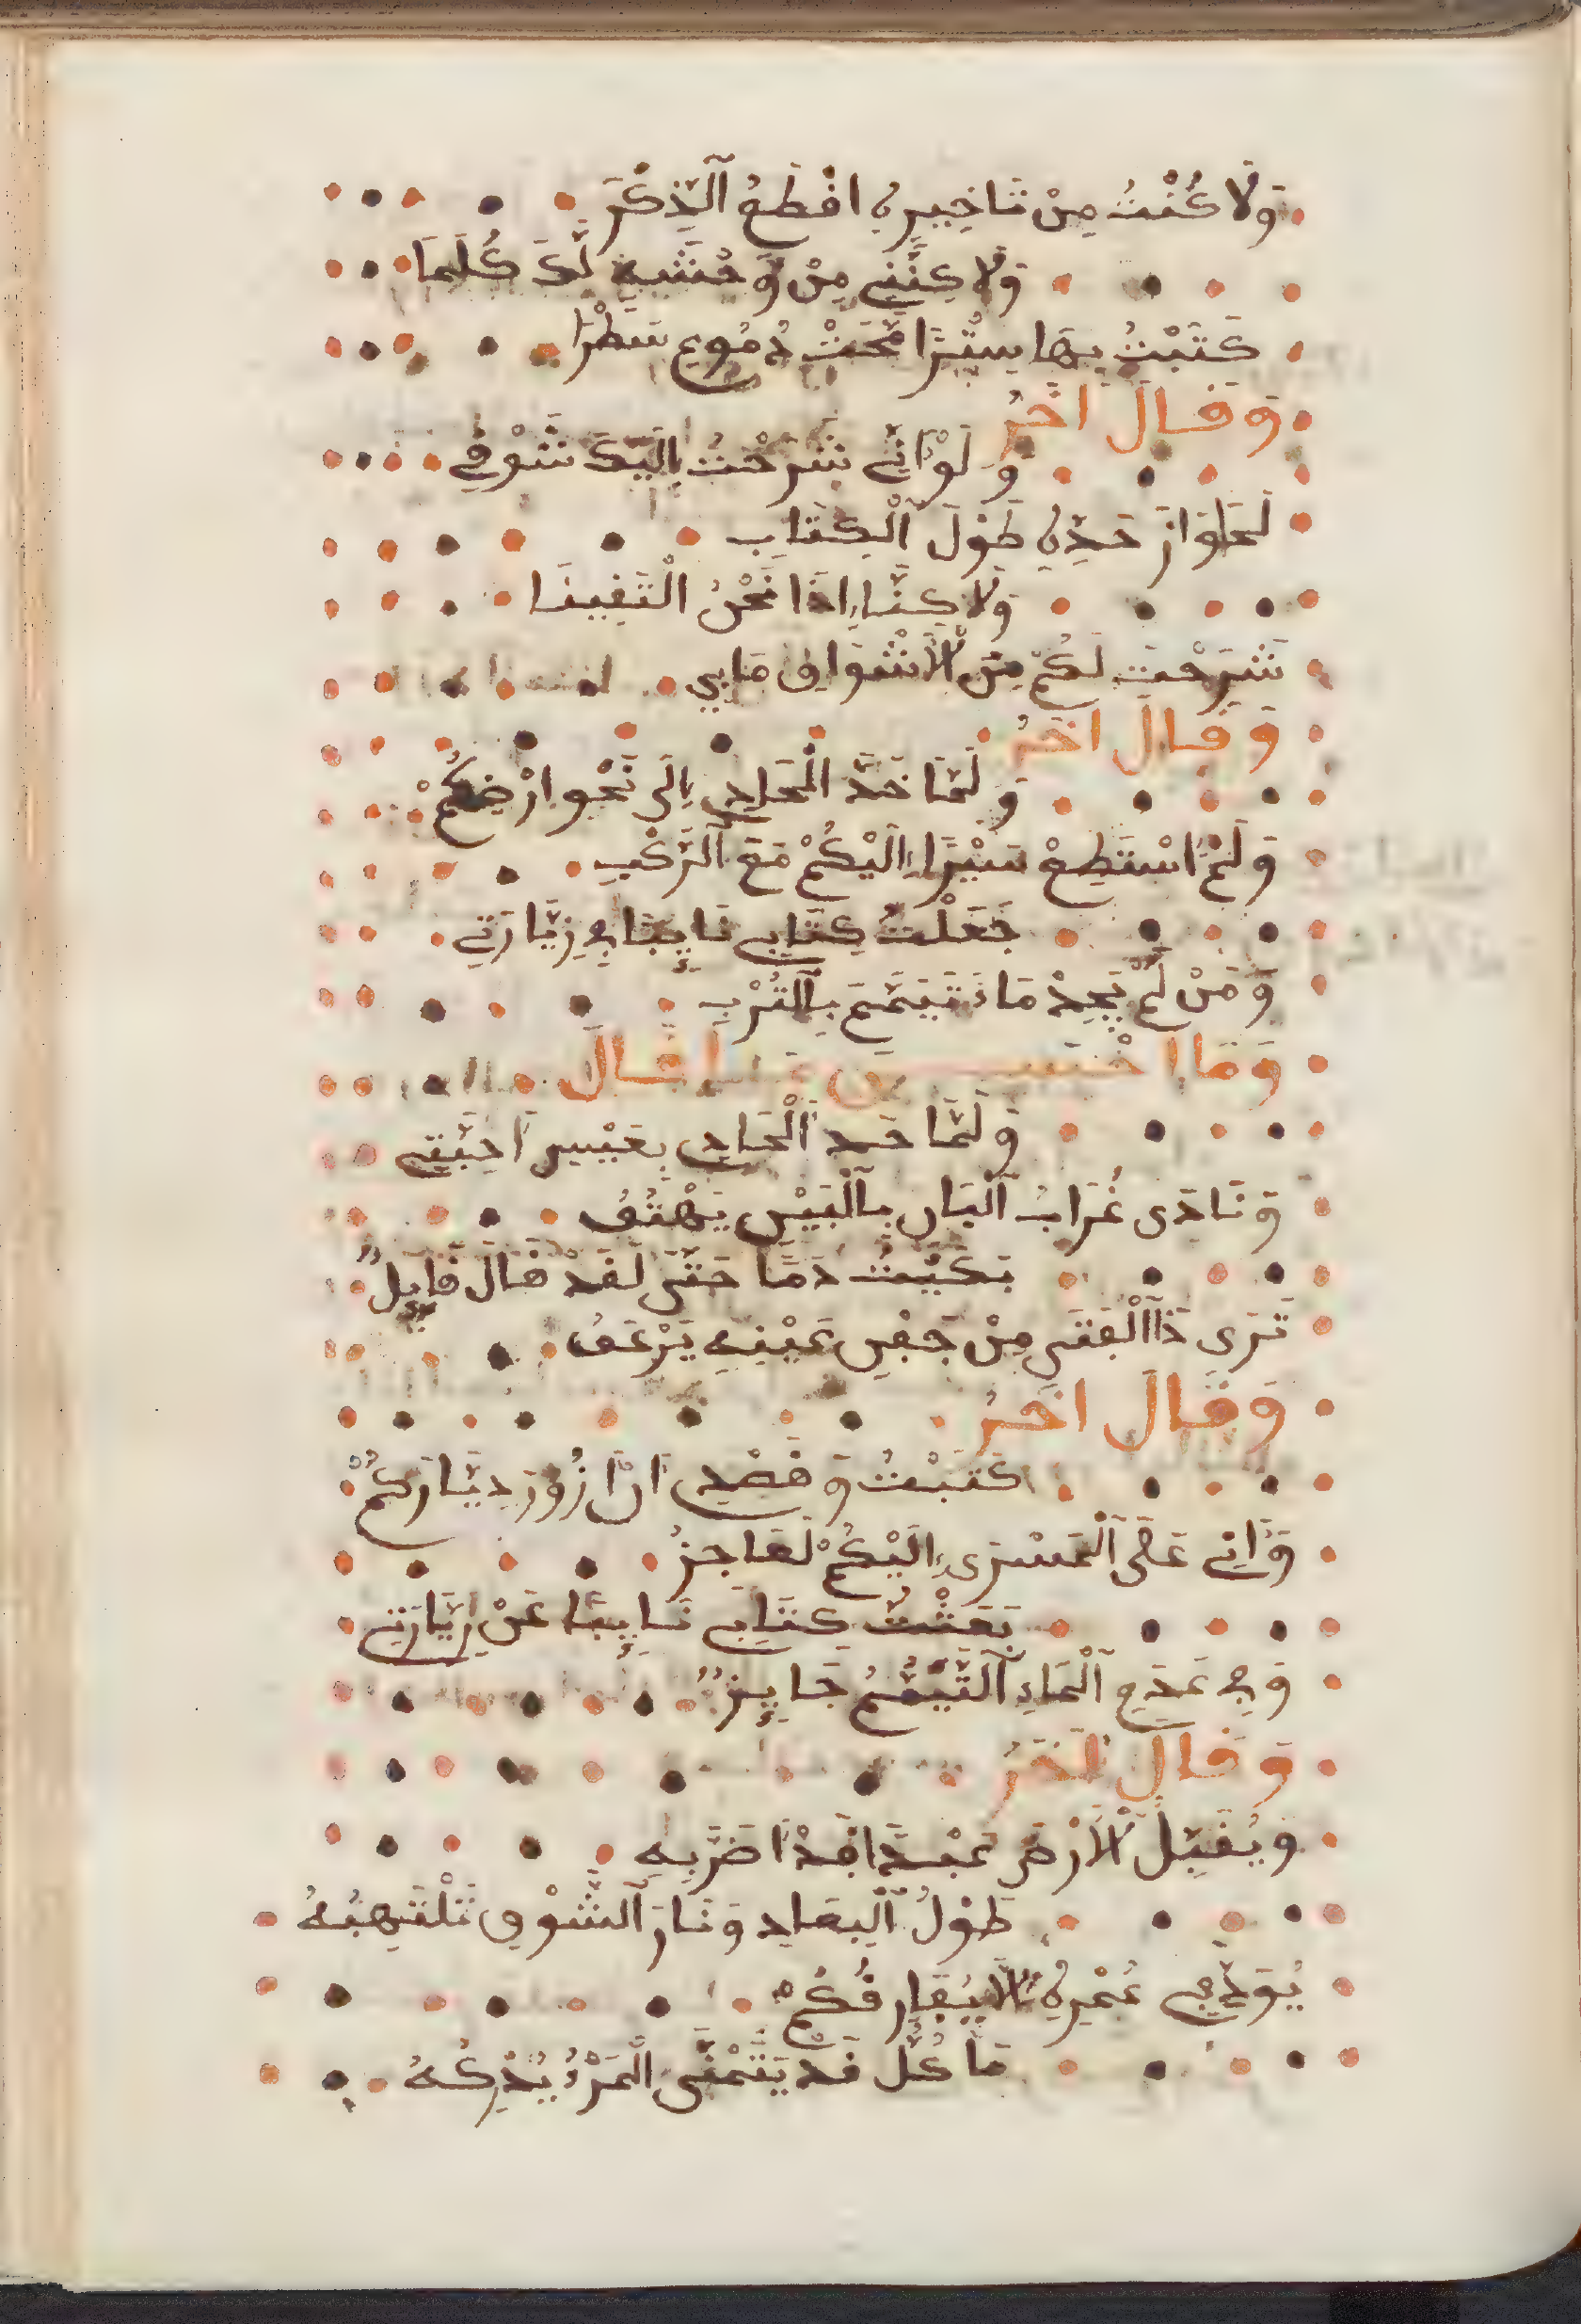 وَلَا كُنْتُ مِنْ تَاخِيرِي اقْطَعُ اَلذِّكْرَ
وَلَاكِنَّنِي مِنْ وَحْشَتِي لَكَ كُلَّمَا
كَتَبْتُ بِهَا سِتْرًا مَّحَتْ دُمُوعِ سَطْرًا
وَقَالَ اخَرُ
وَلَوْ اَنِّي شَرَحْتُ اِلَيْكَ شَوْقِي
لَجَاوَازَ حَدِّي طُولَ اَلْكِتَابِ
وَلَاكِنَّا اِذَا نَحْنُ الْتَقَيْنَا
شَرَحْتُ لَكُمْ مِنَ اَلْاَشْوَاقِ مَا بِي
وَقَالَ اخَرُ
وَلَمَّا حَدَّ الْحَادِي اِلَى نَحْوِ ارْضِكُمْ
وَلَمْ اَسْتَطِعْ سَيْرًا اِلَيْكُمْ مَعَ اَلرَّكْبِ
جَعَلْتُ كِتَابِي نَايِبًا فِي زِيَّارَتِي
وَمَنْ لَمْ يَجِدْ مَاءَ تَيَمَّمَ بِالتُّرْبِ
وَمَا اَحْسَنَ مَا قَالَ
وَلَمَّا حَدَ اَلْحَادِي بِعَيْسِ اَحِبَّتِي
وَنَادَى غُرَابُ اَلْبَانِ بِالْبَيْنِ يَهْتُفُ
بَكَيْتُ دَمًا حَتَّى لَقَدْ قَالَ قَايِلٌ
تَرَى ذَا اَلْفَتَى مِنْ جَفْنِ عَيْنِهِ يَرْعَفُ
وَقَالَ اخَرُ
كَتَبْتُ وَقَصْدِي اَنْ اَزُورَ دِيَّارَكُمْ
وَاَنِّي عَلَى اَلْمَسْرَى اِلَيْكُمْ لَعَاجِزُ
بَعَثْتُ كِتَابِي نَايِبًا عَنْ زِيَّارَتِي
وَفِي عَدَمِ اَلْمَاءِ اَلتَّيَمُّمُ جَايِزٌ
وَقَالَ اخَرُ
وَيُقَبِّلُ اَلْاَرْضَ عَبْدًا قَدْ اَضَرَّ بِهِ
طُولُ اَلْبِعَادِ وَنَارَ اَلشَّوْقِ تَلْتَهِبُهُ
يُوَدِّي عُمْرِهِ لَا يُفَارِقُكُمْ
مَا كُلُّ قَدْ يَتَمَنَّى الْمَرْءُ يُدْرِكُهُ